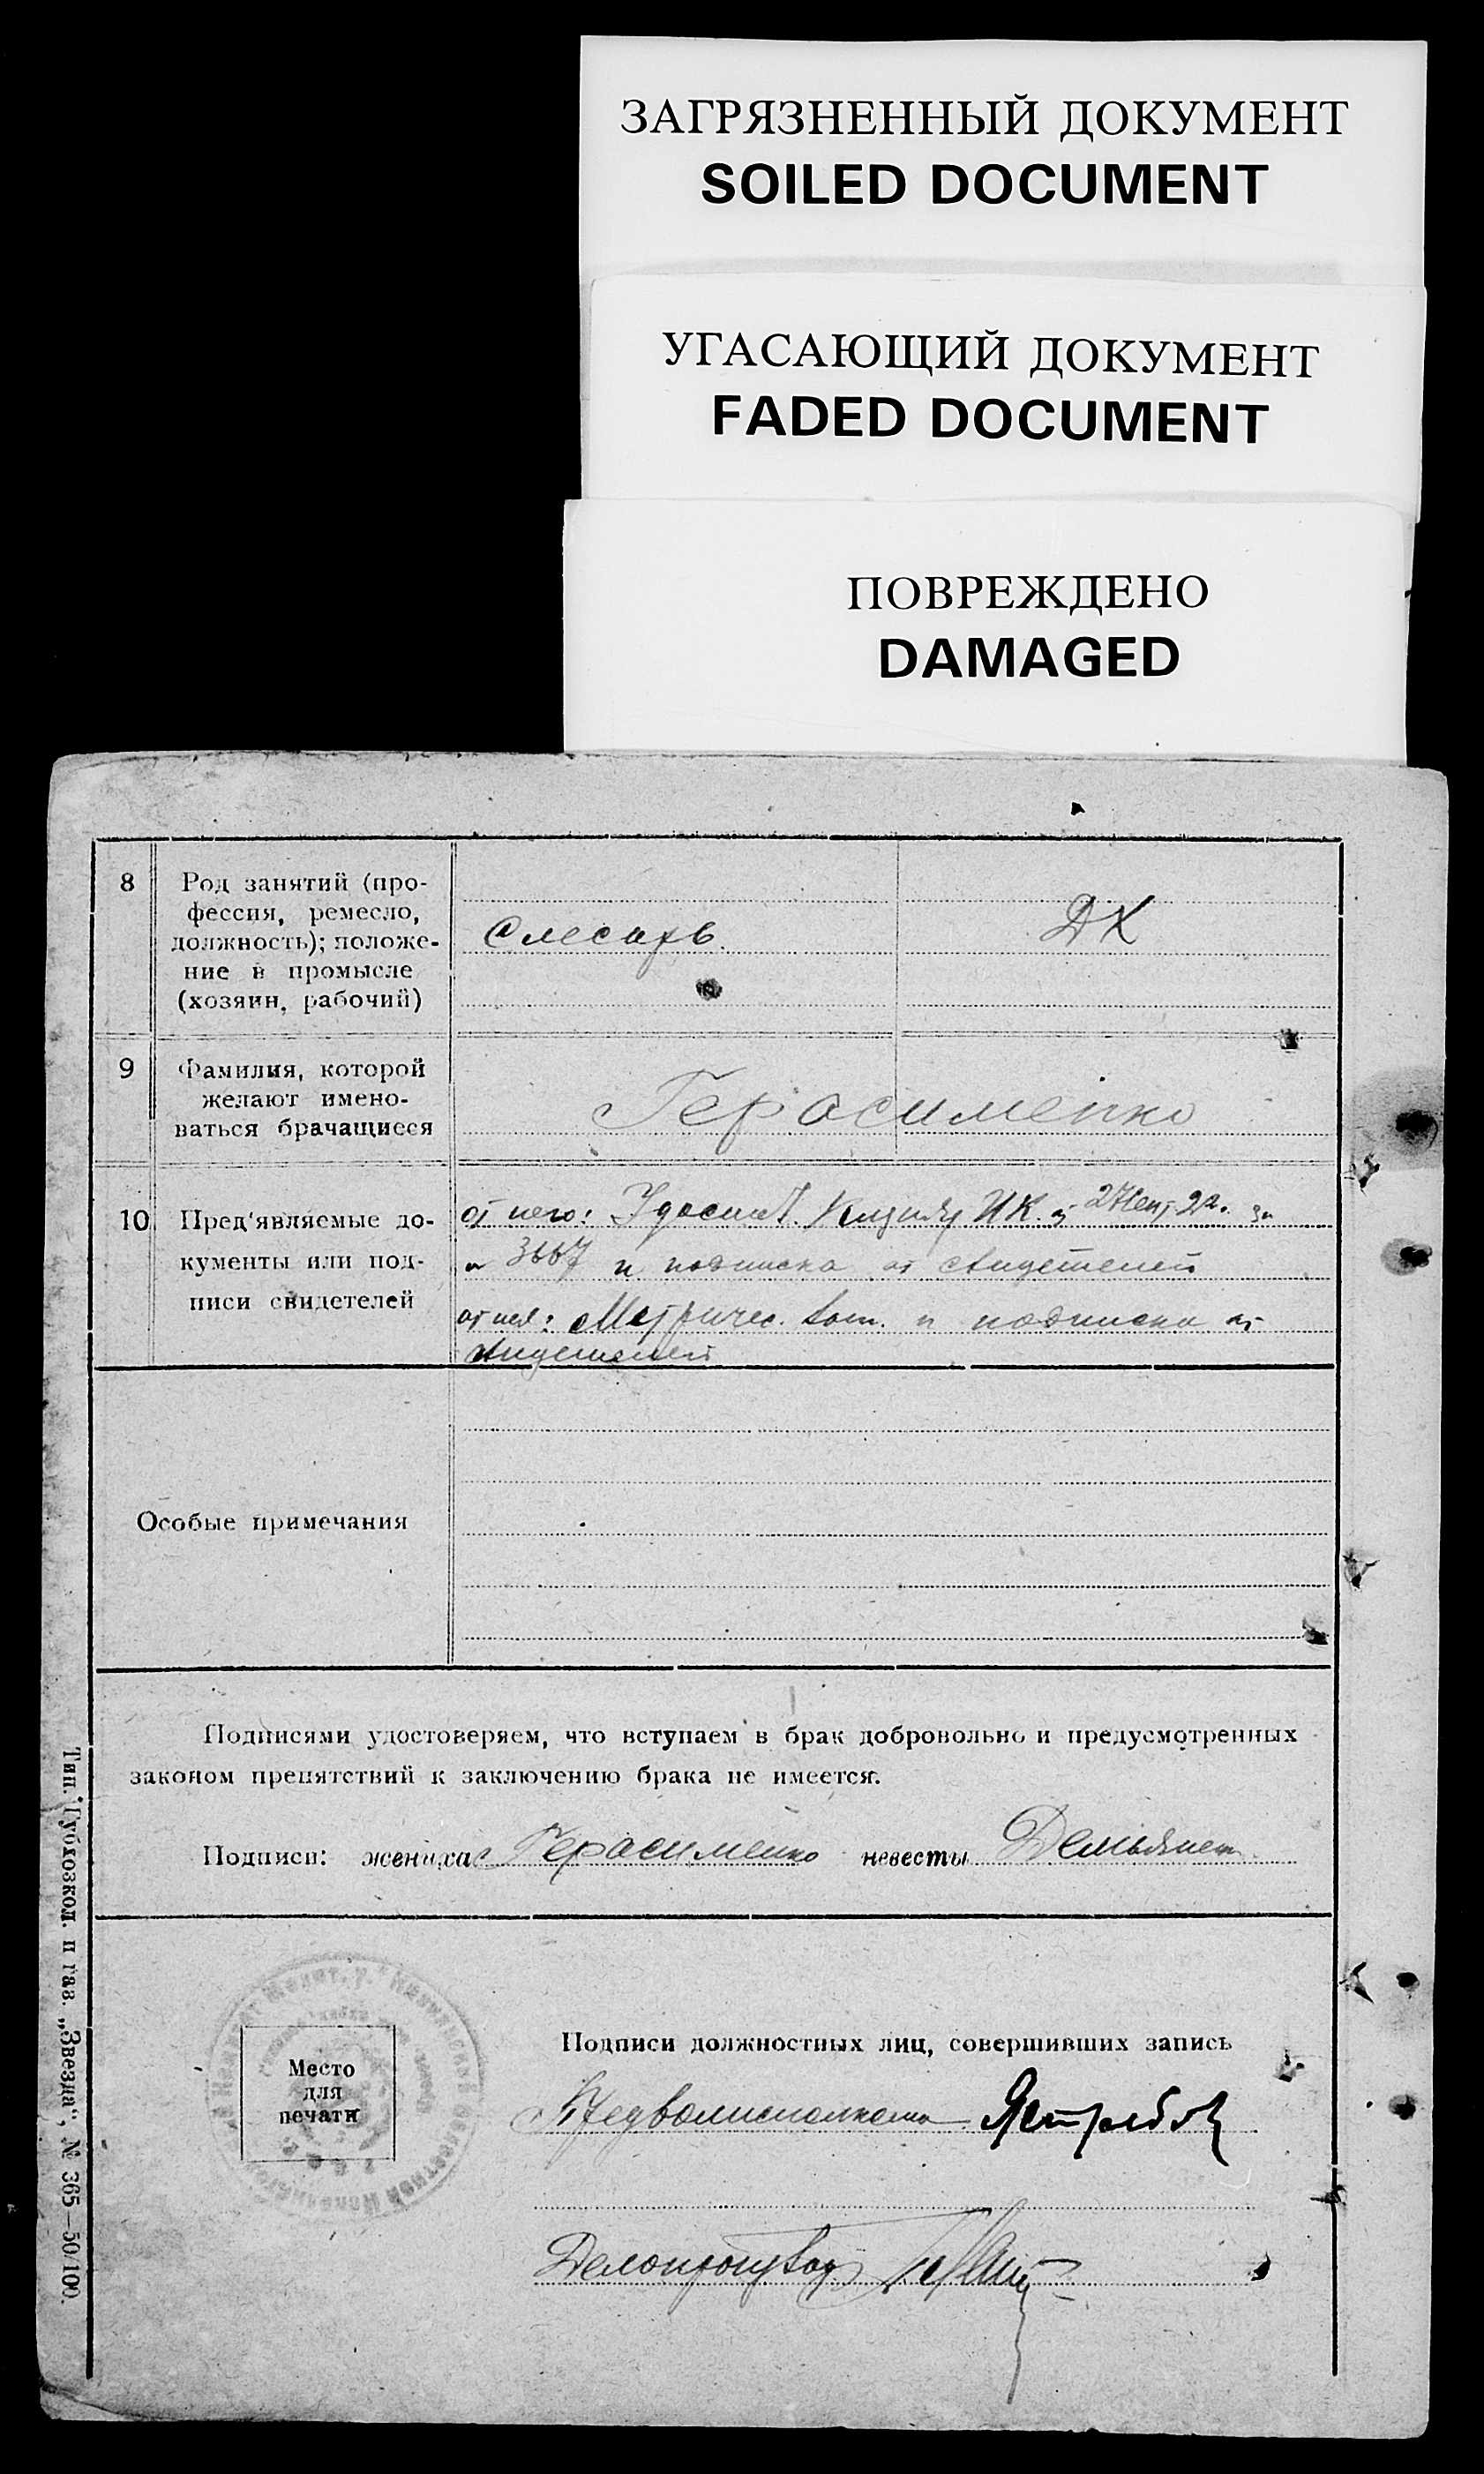 ЗАГРЯЗНЕННЫЙ ДОКУМЕНТ
SOILED DOCUMENT
УГАСАЮЩИЙ ДОКУМЕНТ
FADED DOCUMENT
ПОВРЕЖДЕНО
DAMAGED
8 Род занятий (про-
фессия, ремесло,
должность); положе-
ние в промысле
(хозяин, рабочий)
Слесарь. ДХ
9 Фамилия, которой
желают имено-
ваться брачащиеся
Герасименко
10 Пред'являемые до-
кументы или под-
писи свидетелей
от него: ИК.
3667 и подписка от свидетелей
от нея: Метричес. и подписка от
свидетелей
Особые примечания
Подписями удостоверяем, что вступаем в брак добровольно и предусмотренных
законом препятствий к заключению брака не имеется.
Подписи: жениха Герасименко невесты
Место
для
печати
Подписи должностных лиц, совершивших запись
Предволисполкома
Делопроизвод
Тип. Губкозком. и газ. „Звезда", № 365—50/100.